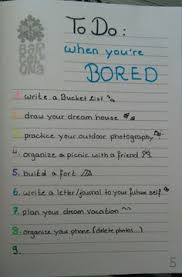 To Do:
when you're
BORED
BAR
CEL
ONA
1. write a Bucket List
2. draw your dream house
3. practice your outdoor photography
4. organize a picnic with a friend
5. build a fort
6. write a letter/journal to your future self
7. plan your dream vacation
8. organise your phone (delete photos...)
9.
5